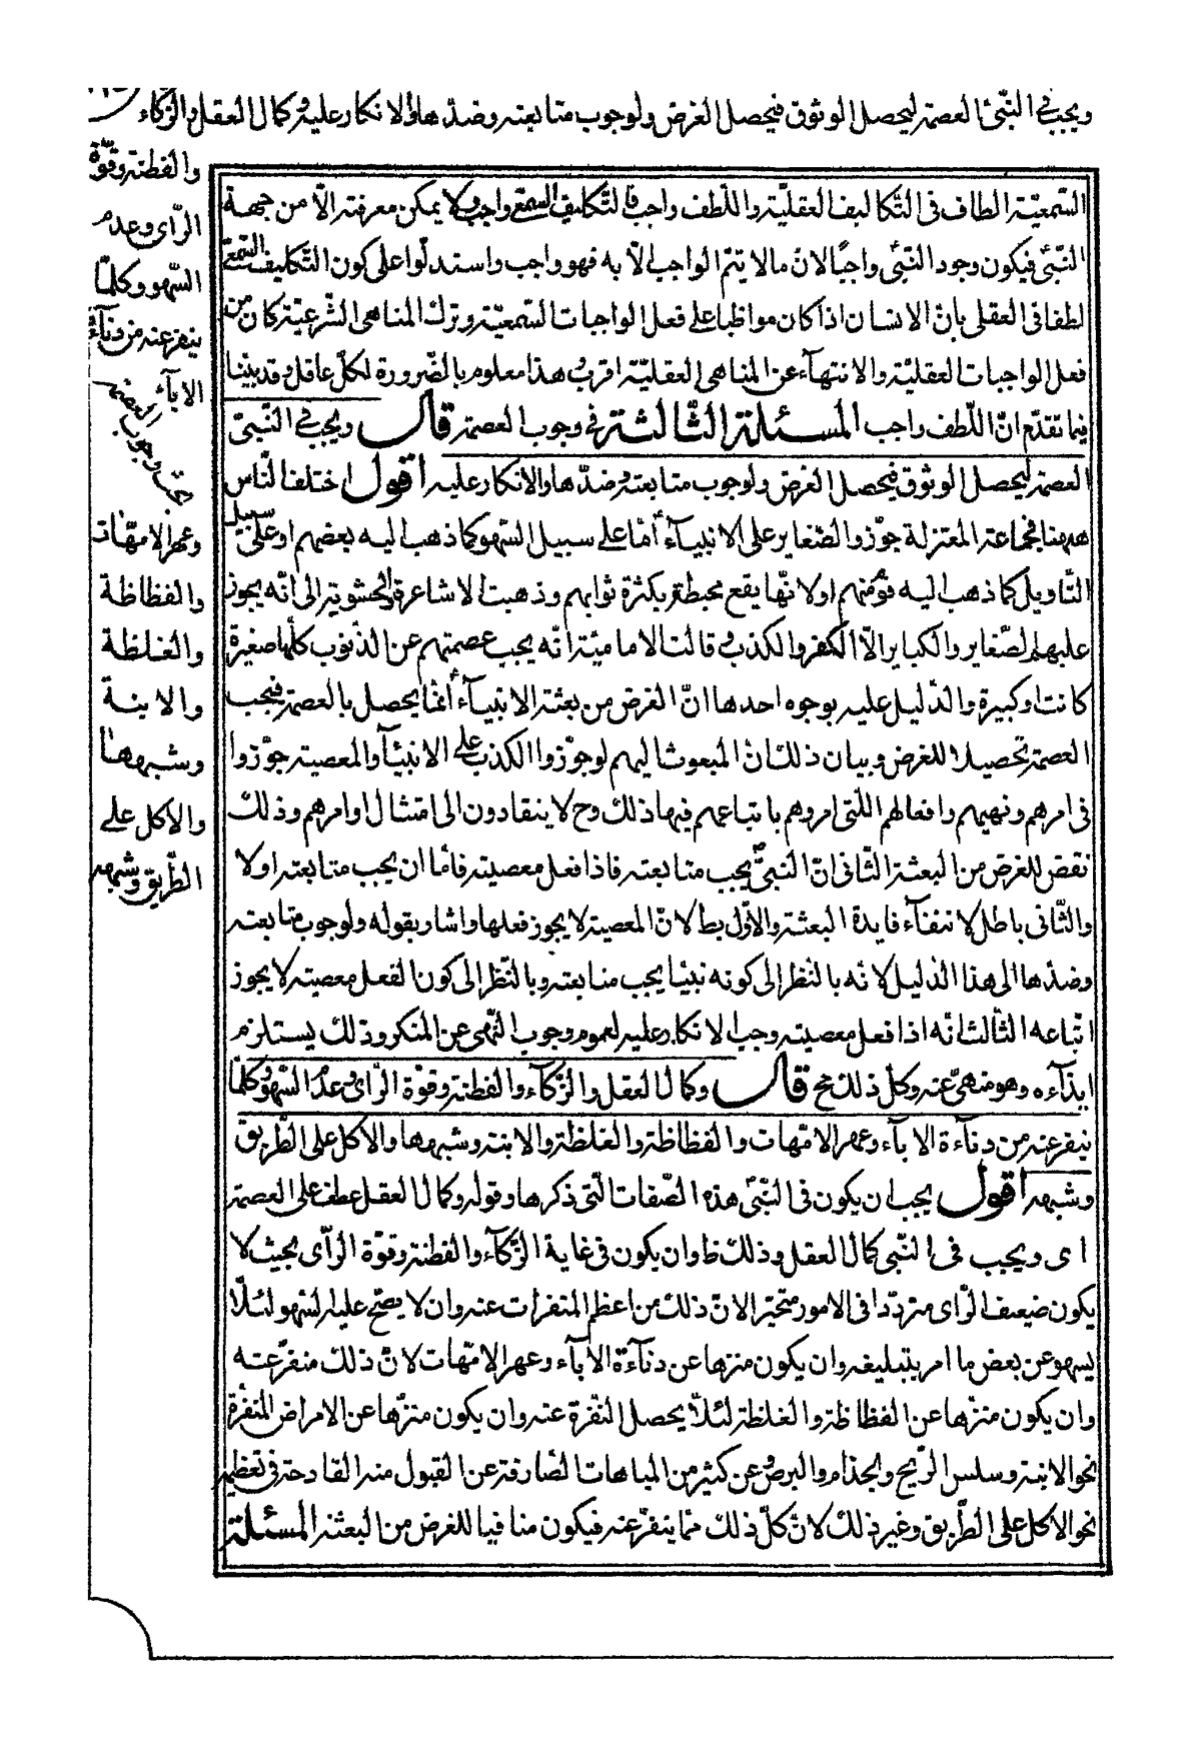 ويجب في النّبيّ العصمة ليحصل الوثوق فيحصل الغرض ولوجوب متابعته وضدّها والانكار عليه وكمال العقل والذّكاء
والفطنة وقوّة
الرّأى وعدم
السّهو وكلّما
ينفر عنه من دنآءة
الاباء
بحث وجوب العصمة
وعهر الامّهات
والفظاظة
والغلظة
والابنة
وشبهها
والاكل على
الطّريق وشبهه
السّمعيّة الطاف فى التّكاليف العقليّة واللّطف واجب فالتّكليف السّمعى واجب ولا يمكن معرفته الّا من جهة
النّبىّ فيكون وجود النّبىّ واجبًا لانّ ما لا يتمّ الواجب الّا به فهو واجب واستدلّوا على كون التّكليف السّمعىّ
لطفا فى العقلى بانّ الانسان اذا كان مواظبا على فعل الواجبات السّمعيّة وترك المناهى الشّرعيّة كان من
فعل الواجبات العقليّة والانتهآء عن المناهى العقليّة اقرب هذا معلوم بالضّرورة لكلّ عاقل وقد بيّنا
فيما تقدّم انّ اللّطف واجب المسئلة الثّالثة فى وجوب العصمة قال ويجب فى النّبىّ
العصمة ليحصل الوثوق فيحصل الغرض ولوجوب متابعته وضدّها والانكار عليه اقول اختلف النّاس
ههنا فجماعة المعتزلة جوّزوا الصّغاير على الانبيآء أمّا على سبيل السّهو كما ذهب اليه بعضهم او على سبيل
التّاويل كما ذهب اليه قوم منهم او لانّها يقع محبطة بكثرة ثوابهم وذهبت الاشاعرة والحشوية الى انّه يجوز
عليهم الصّغاير والكباير الّا الكفر والكذب وقالت الاماميّة انّه يجب عصمتهم عن الذّنوب كلّها صغيرة
كانت او كبيرة والدّليل عليه بوجوه احدها انّ الغرض من بعثة الانبيآء أنّما يحصل بالعصمة فيجب
العصمة تحصيلا للغرض وبيان ذلك انّ المبعوث اليهم لو جوّزوا الكذب على الانبيآء والمعصية جوّزوا
فى امرهم ونهيهم وافعالهم الّتى امروهم باتباعهم فيها ذلك وح لا ينقادون الى امتثال اوامرهم وذلك
نقض للغرض من البعثة الثّانى انّ النبىّ ص يجب متابعته فاذا فعل معصية فامّا ان يجب متابعته او لا
والثّانى باطل لانتفآء فايدة البعثة والاوّل بط لانّ المعصية لا يجوز فعلها واشار بقوله ولوجوب متابعته
وضدّها الى هذا الدّليل لانّه بالنّظر الى كونه نبيّا يجب متابعته وبالنّظر الى كون الفعل معصية لا يجوز
اتّباعه الثّالث انّه اذا فعل معصية وجب الانكار عليه لعموم وجوب النّهى عن المنكر وذلك يستلزم
ايذآءه وهو منهىّ عنه وكلّ ذلك مح قال وكمال العقل والذّكآء والفطنة وقوّة الرّأى وعدم السّهو وكلّما
ينفر عنه من دنآءة الابآء وعهر الامّهات والفظاظة والغلظة والابنة وشبهها والاكل على الطّريق
وشبهه اقول يجب ان يكون فى النّبىّ هذه الصّفات الّتى ذكرها وقوله وكمال العقل عطف على العصمة
اى ويجب فى النّبى كمال العقل وذلك ظ وان يكون فى غاية الذّكآء والفطنة وقوّة الرّاى بحيث لا
يكون ضعيف الرّاى متردّدا فى الامور متحيّرا لانّ ذلك من اعظم المنفرات عنه وان لا يصحّ عليه السّهو لئلّا
يسهو عن بعض ما امر بتبليغه وان يكون منزها عن دنآءة الأبآء وعهر الامّهات لانّ ذلك منفّر عنه
وان يكون منزّها عن الفظاظة والغلظة لئلّا يحصل النّفرة عنه وان يكون منزّها عن الامراض المنفّرة
نحو الابنة وسلس الرّيح والجذام والبرص وعن كثير من المباهات الصّارفة عن القبول منه القادحة فى تعظيمه
نحو الاكل على الطّريق وغير ذلك لانّ كلّ ذلك ممّا ينفّر عنه فيكون منافيا للغرض من البعثة المسئلة